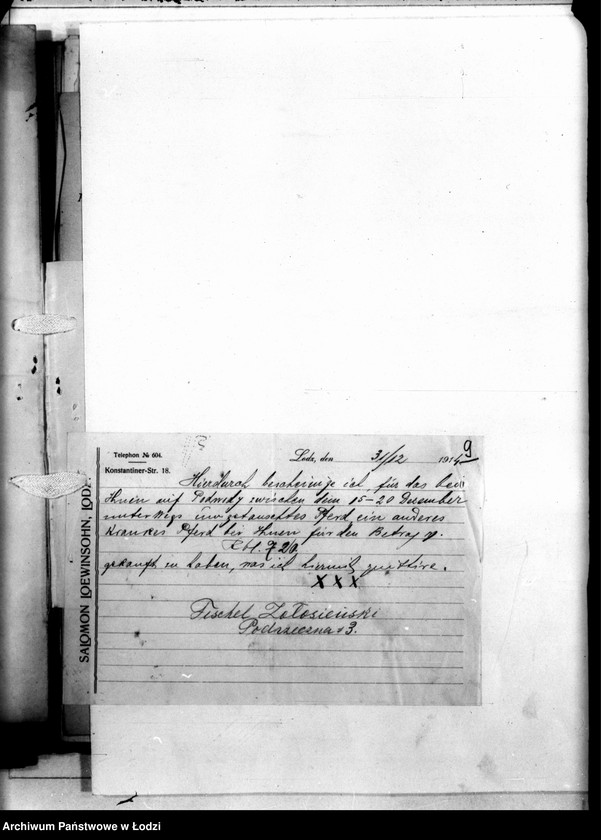 9
Telephon № 604.
Konstantiner-Str. 18.
Lodz, den 31/12 1914
SALOMON LOEWINSOHN, LODZ
Hierdurch bescheinige ich für das bei
Ihnen auf Podwody zwischen dem 15-20 Dezember
unterwegs umgetauschtes Pferd ein anderes
Krankes Pferd bei Ihnen für den Betrag v.
720
gekauft zu haben, was ich hiermit quittire.
XXX
Fischel Zołosieński
Podrzeczna 3.
Archiwum Państwowe w Łodzi